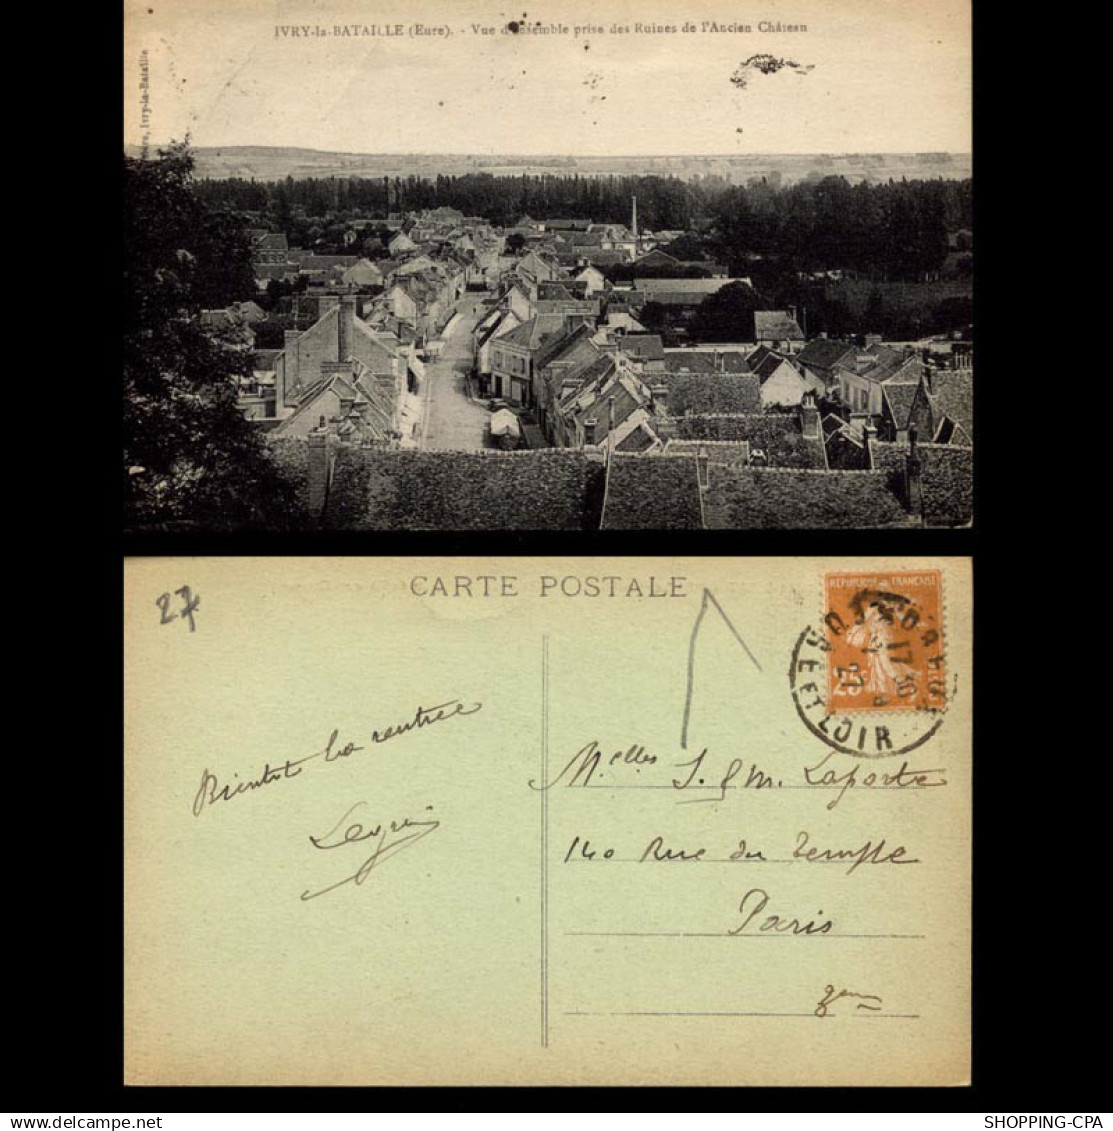 IVRY-la-BATAILLE (Eure). - Vue d'ensemble prise des Ruines de l'Ancien Château
Ivry-la-Bataille
CARTE POSTALE
27
RÉPUBLIQUE FRANÇAISE
25c
17
EET LOIR
Bientot la rentrée
M.elles S. & M. Laporte
140 Rue du Temple
Paris
SHOPPING-CPA